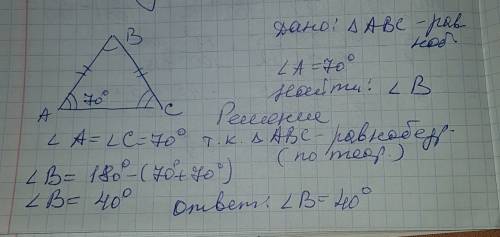 B
A 70° C
Дано: △ABC - рав
ноб.
∠A = 70°
Найти: ∠B
Решение
∠A = ∠C = 70° т.к. △ABC - равнобедр-
(по теор.)
∠B = 180° - (70° + 70°)
∠B = 40° Ответ: ∠B = 40°